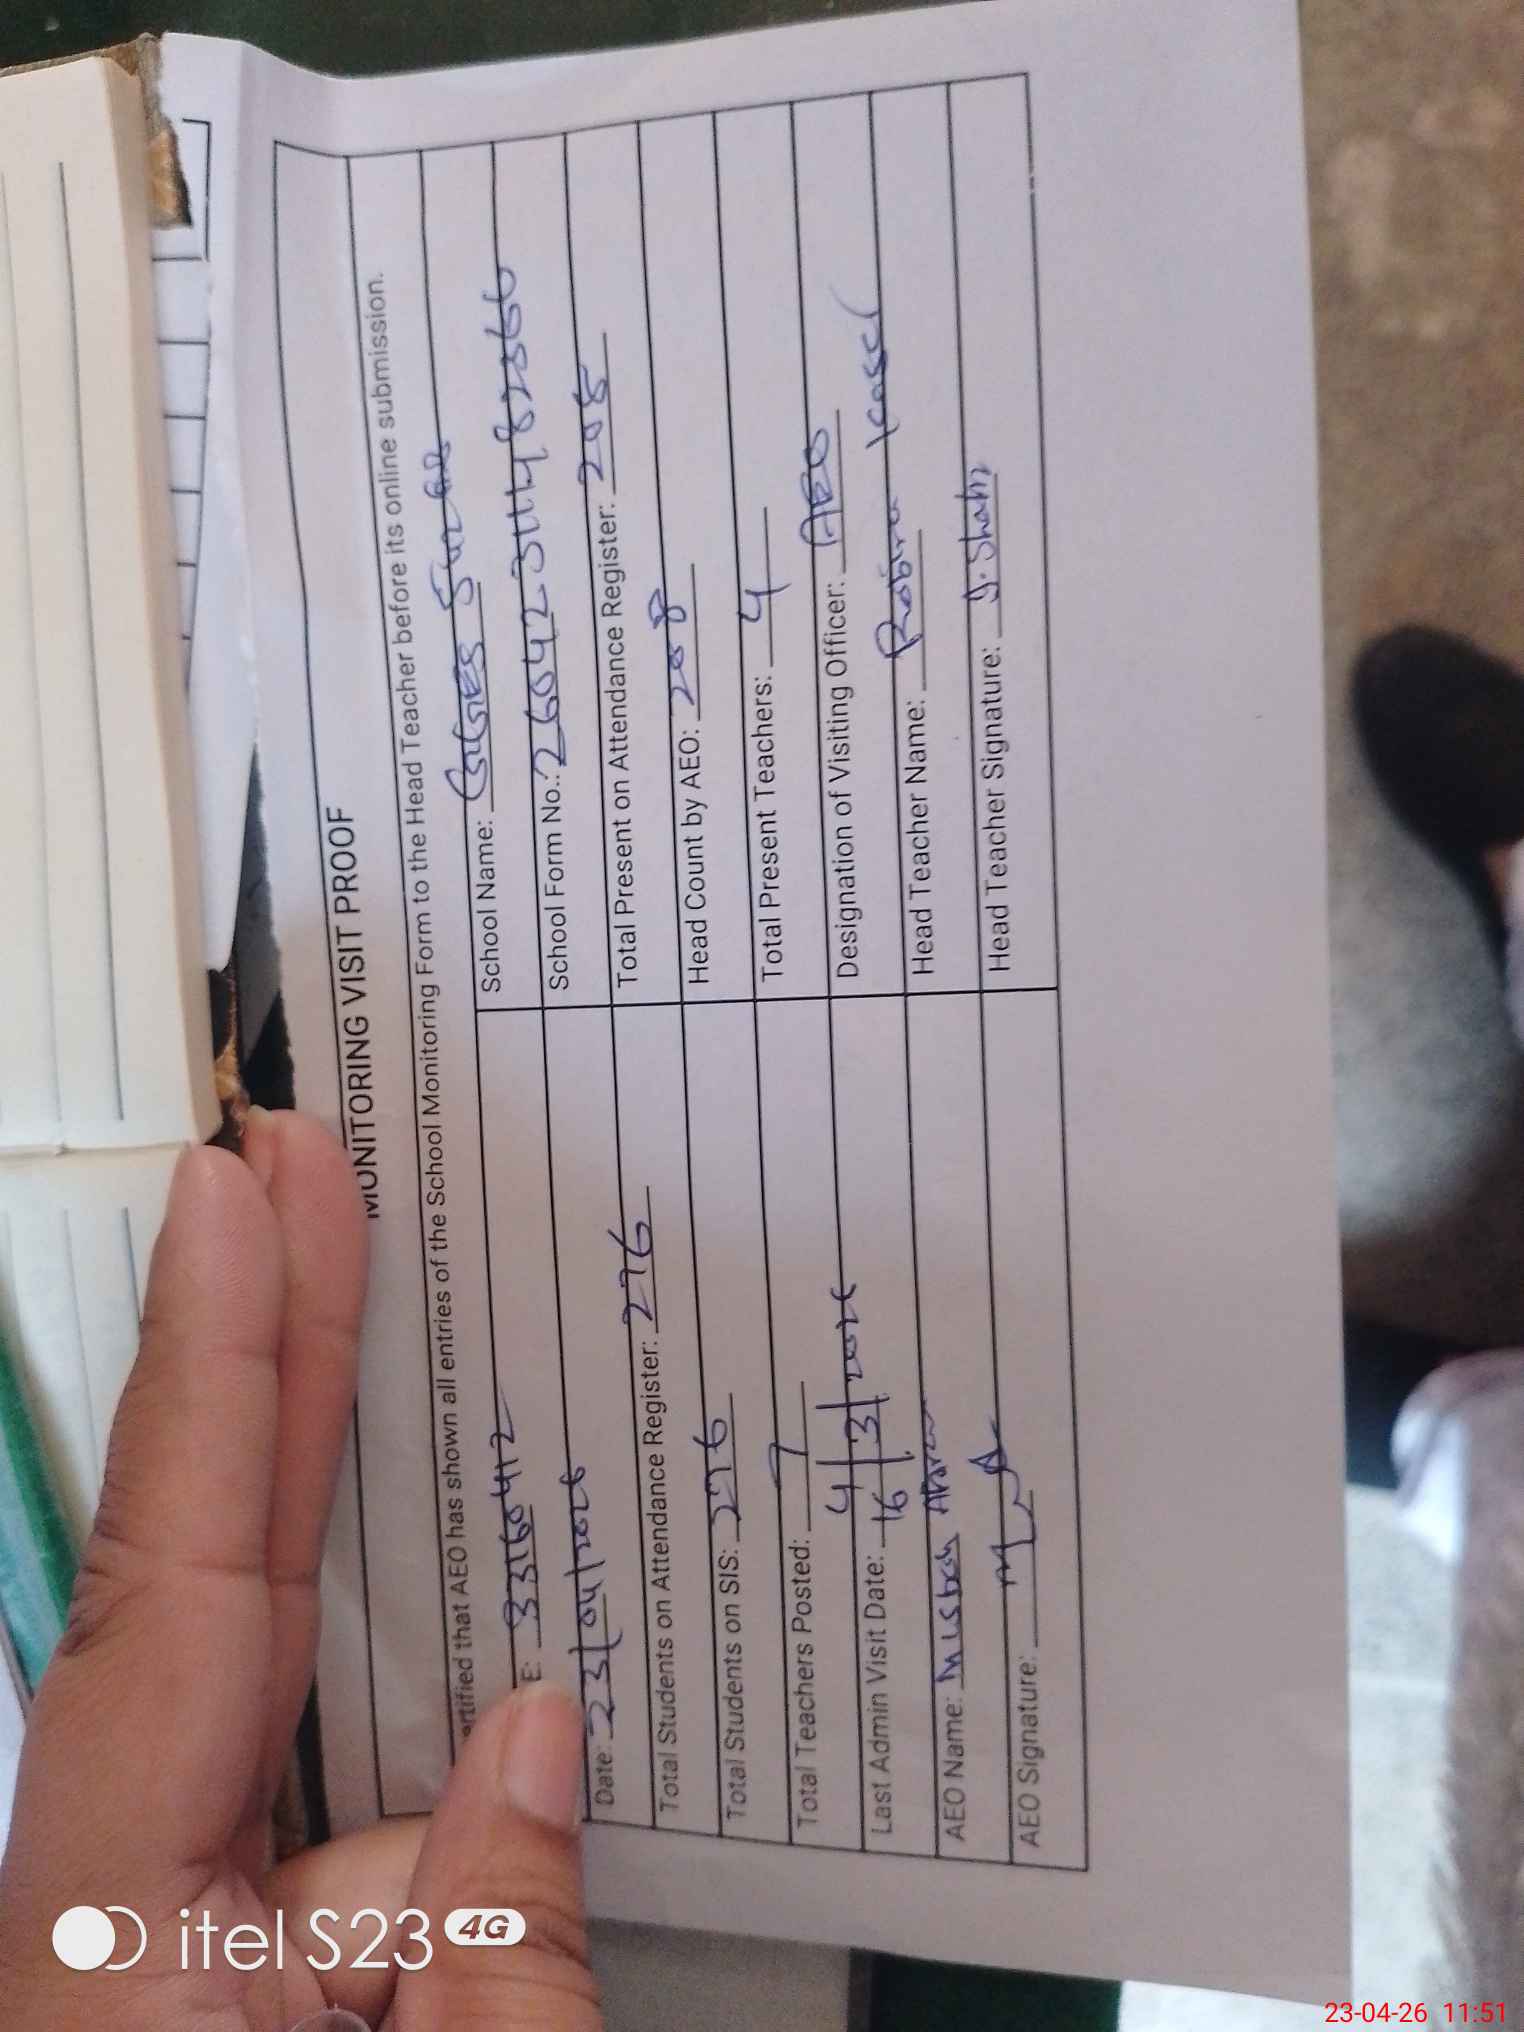 MONITORING VISIT PROOF
ertified that AEO has shown all entries of the School Monitoring Form to the Head Teacher before its online submission.
E: 33160412
School Name: GGES
Date: 23/04/2026
School Form No.: 26042311482366
Total Students on Attendance Register: 276
Total Present on Attendance Register: 208
Total Students on SIS: 276
Head Count by AEO: 208
Total Teachers Posted: 7
Total Present Teachers: 4
Last Admin Visit Date: 16
Designation of Visiting Officer: AEO
AEO Name: Misbah
Head Teacher Name: Robina
AEO Signature:
Head Teacher Signature:
itel S23 4G
23-04-26 11:51